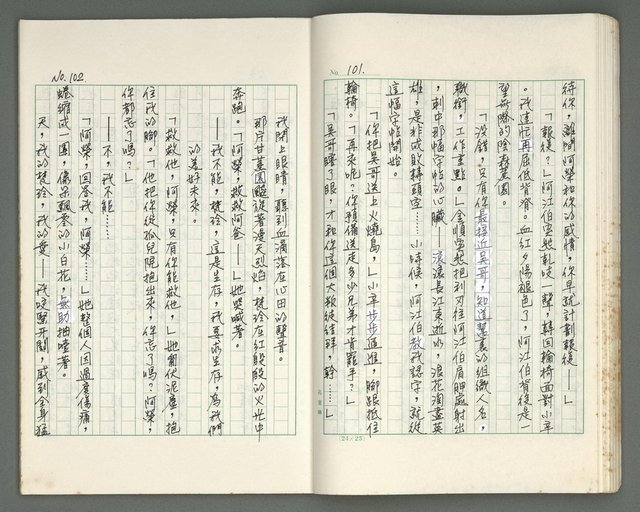 No. 101.
待你，離間阿榮和你的感情，你早就計劃報復——」
「報復？」阿江伯突然亂啶一聲，轉回輪椅面對小辛
。我連忙再屈低背脊。血紅夕陽褪色了，阿江伯背後是一
望無際的陰森墓園。
「沒錯，只有你最接近吳哥，知道慧裏的組織人名，
職銜，工作重點。」金順突然把到刃往阿江伯肩胛處射出
，刺中那幅字帖的心臟——滾滾長江東逝水，浪花淘盡英
雄，是非成敗轉頭空……小時候，阿江伯教我認字，就從
這幅字帖開始。
「你把吳哥送上火燒島，」小辛步步逼進，腳跟抵住
輪椅。「再來呢？你預備送走多少兄弟才肯罷手？」
「吳哥瞎了眼，才和你這個大叛徒結拜，幹……」
(24×25)
No. 102.
我閉上眼睛，聽到血滴落在心田的聲音。
那片甘蔗園飈旋著漫天烈焰，梵玲在紅殷殷的火光中
奔跑。「阿榮，救救阿爸——」她哭喊著。
——我不能，梵玲，這是生存，我要求生存，為我們
的美好未來。
「救救他，阿榮，只有你能救他，」她匍伏泥塵，抱
住我的腳。「他把你從孤兒院抱出來，你忘了嗎？阿榮，
你都忘了嗎？」
——不，我不能……
「阿榮，回答我，阿榮……」她整個人因過度傷痛，
蜷縮成一團，像朵飄零的小白花，無助抽噎著。
天，我的梵玲，我的愛——我咬緊牙關，感到全身猛